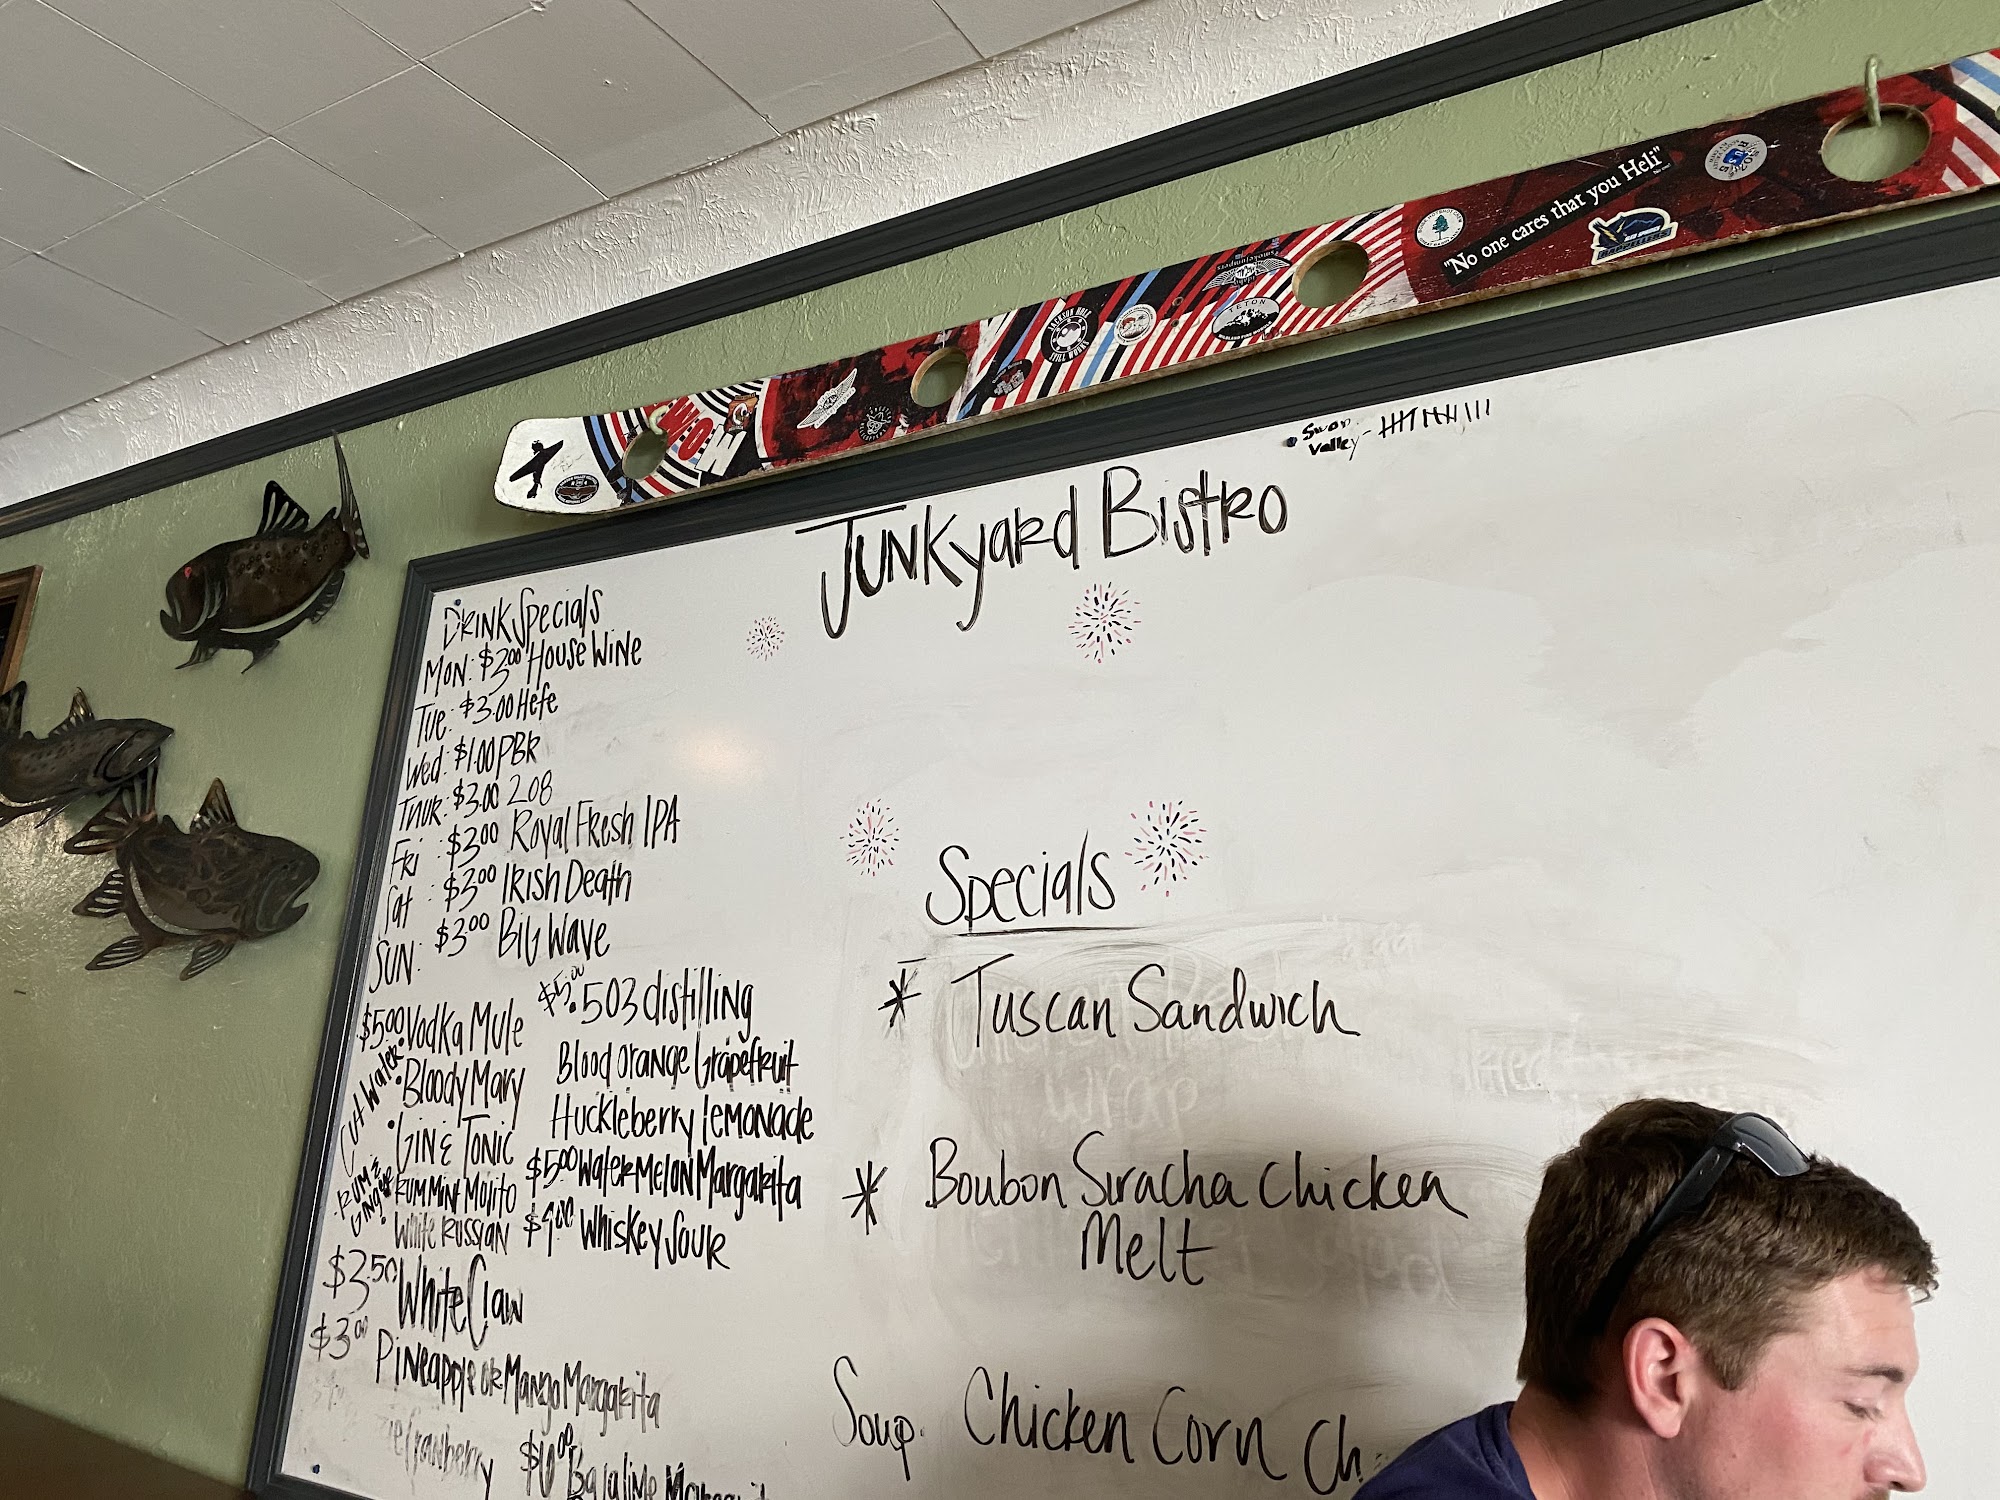 "No one cares that you Heli"
TETON
JACKSON HOLE
STILL WORKS
WOW
Swan
Valley -
Junkyard Bistro
Drink Specials
Mon: $3.00 House Wine
Tue: $3.00 Hefe
Wed: $1.00 PBR
Thur: $3.00 208
Fri: $3.00 Royal Fresh IPA
Sat: $3.00 Irish Death
Sun: $3.00 Big Wave
$5.00 Vodka Mule
Cut Water
• Bloody Mary
• Gin & Tonic
Rum &
Ginger
• Rum Mint Mojito
• White Russian
$5.00 • 503 distilling
Blood Orange Grapefruit
Huckleberry Lemonade
$5.00 Watermelon Margarita
$9.00 Whiskey Sour
$3.50 White Claw
$3.00 Pineapple or Mango Margarita
Cranberry $6.00
Specials
* Tuscan Sandwich
* Boubon Siracha Chicken
Melt
Soup. Chicken Corn Ch